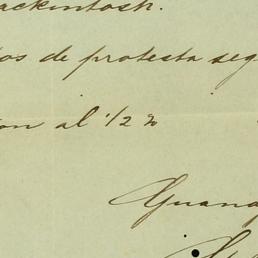 ackintosh.
os de protesta seg
on al 1/2 %
Guana